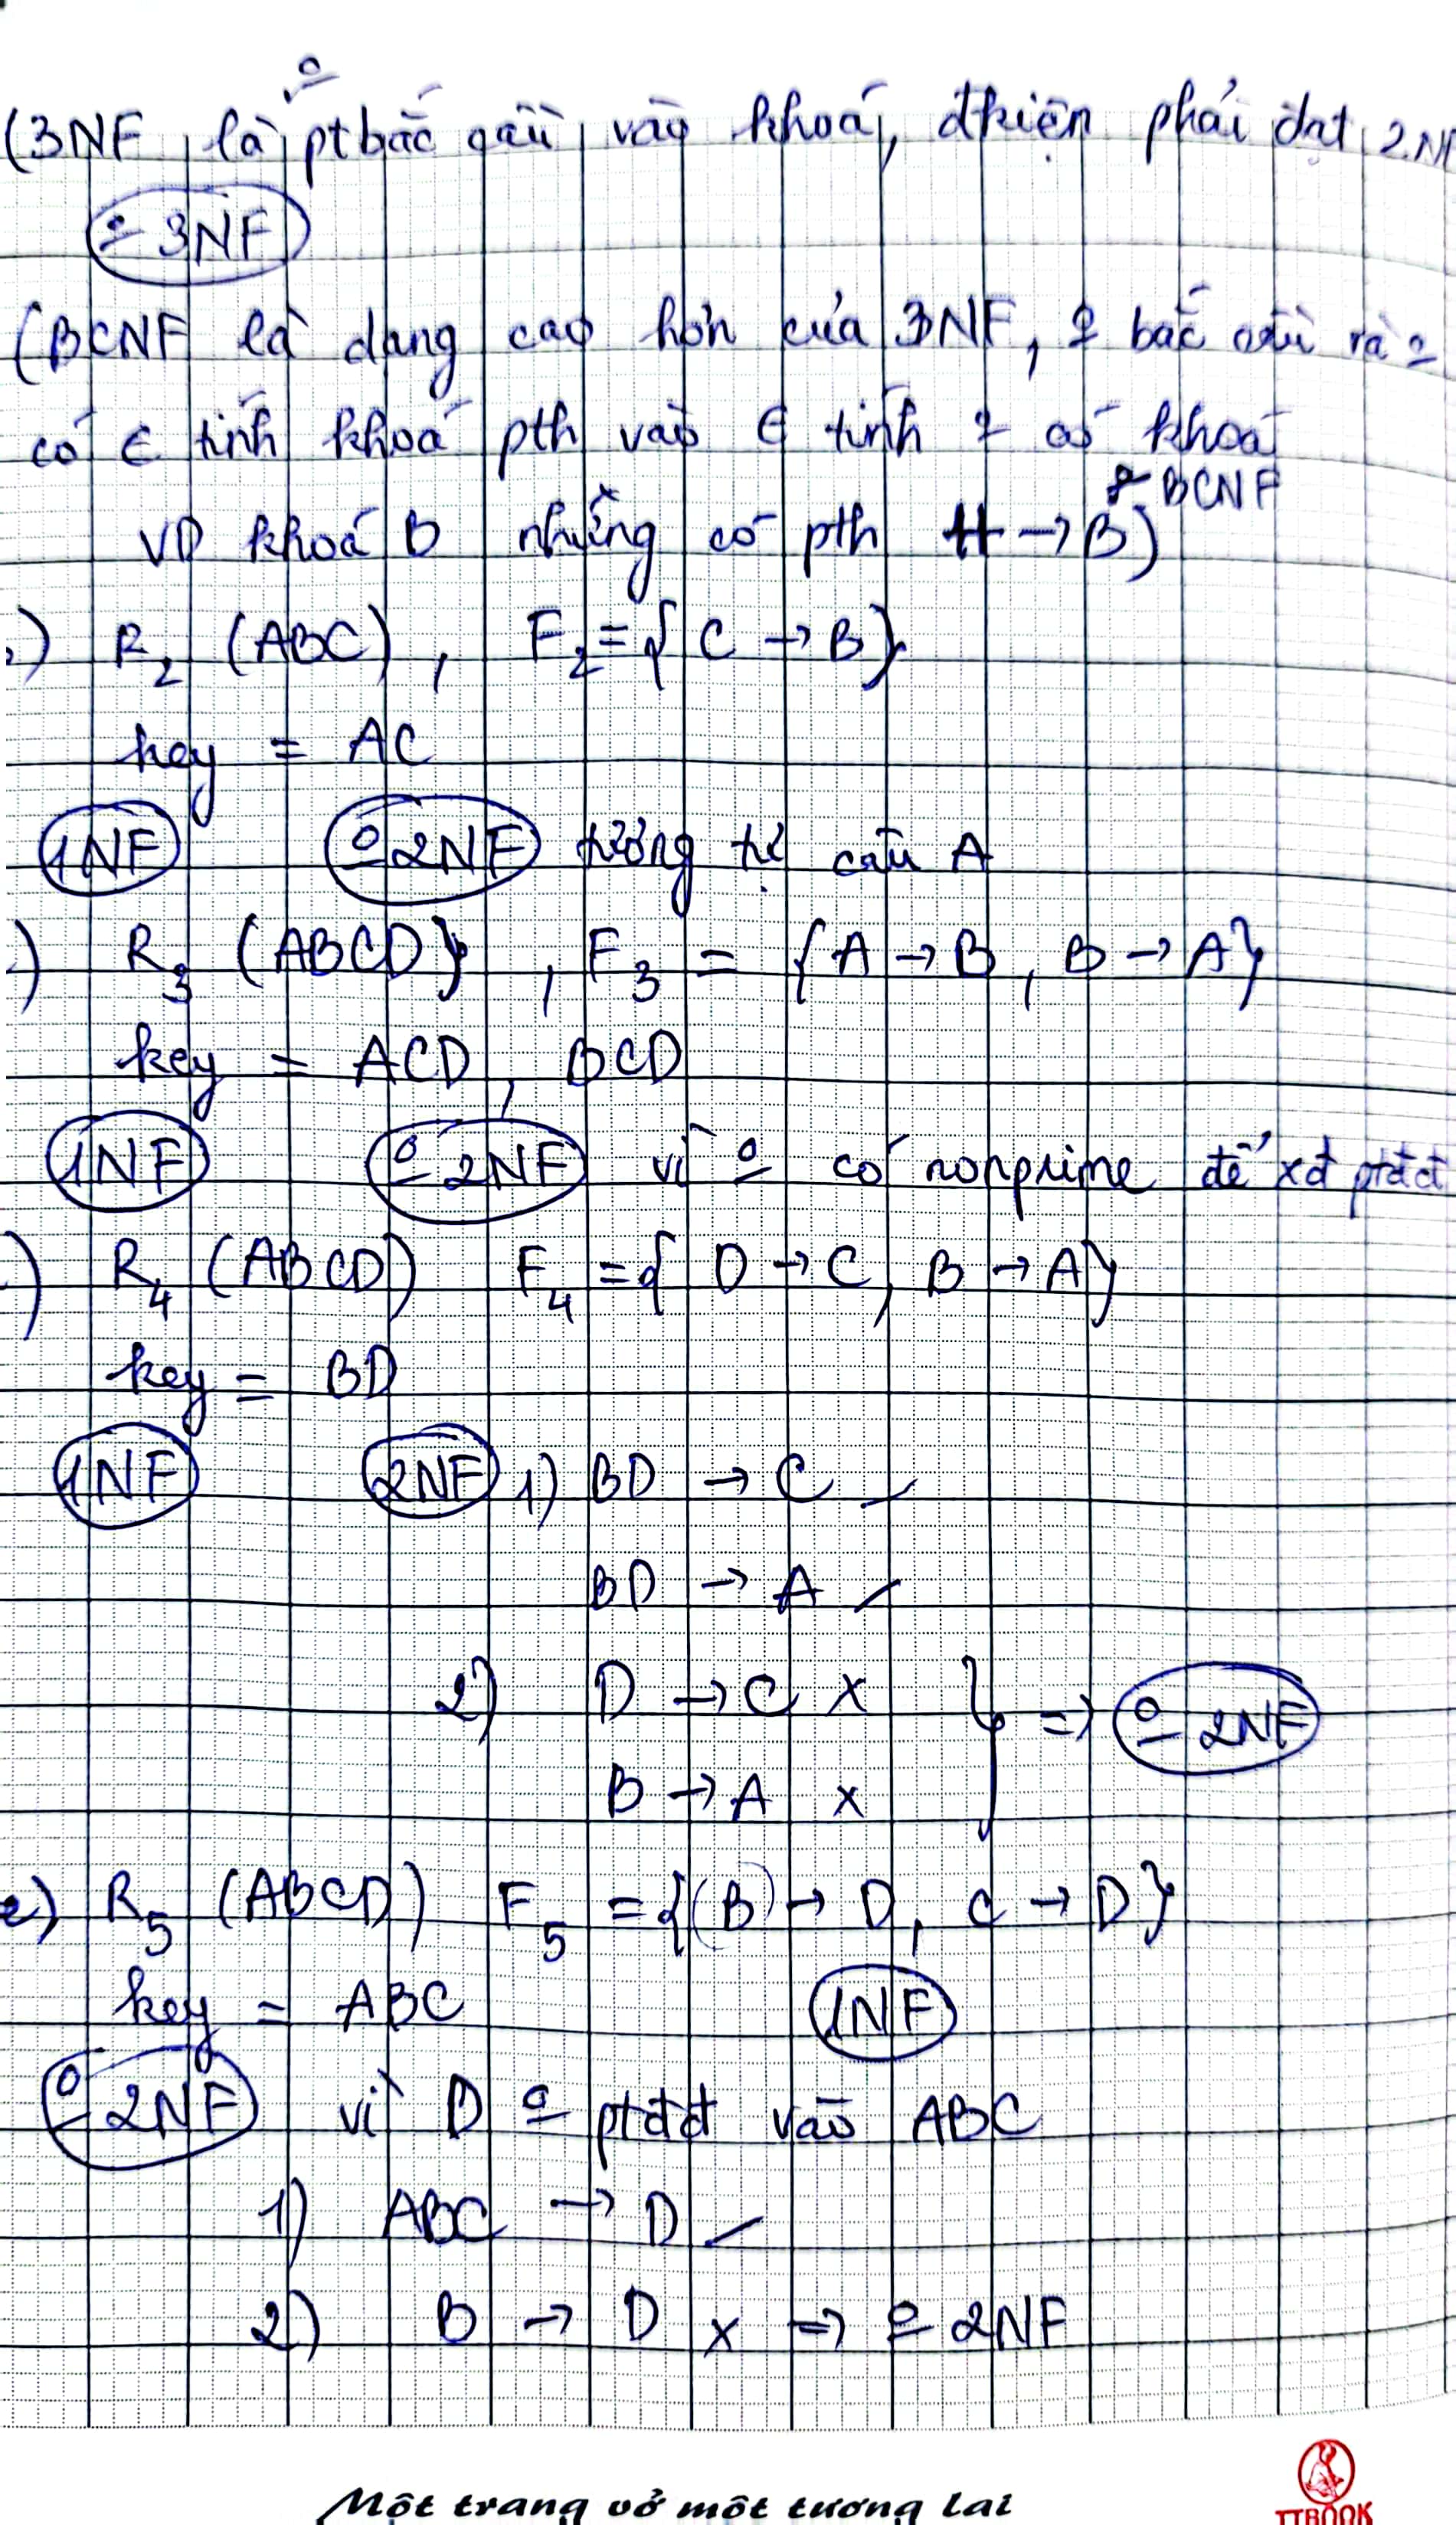 o
(3NF là ptbắc gầu vào khoá, đkiện phải đạt 2NF
o 3NF
(BCNF là dạng cao hơn của 3NF, o bắc cầu và o
có € tính khoá pth vào € tính o có khoá
o BCNF
VD khoá B nhưng có pth H → B)
) R2 (ABC), F2 = { C → B}
key = AC
1NF o 2NF tương tự câu A
) R3 (ABCD}, F3 = {A → B, B → A}
key = ACD, BCD
1NF o 2NF vì o có nonprime để xđ ptđđ
) R4 (ABCD) F4 = { D → C, B → A}
key = BD
1NF 2NF 1) BD → C ✓
BD → A ✓
2) D → C x } => o 2NF
B → A x
e) R5 (ABCD) F5 = {(B) → D, C → D}
key = ABC 1NF
o 2NF vì D o ptđđ vào ABC
1) ABC → D ✓
2) B → D x => o 2NF
Một trang vở một tương lai
TTBOOK